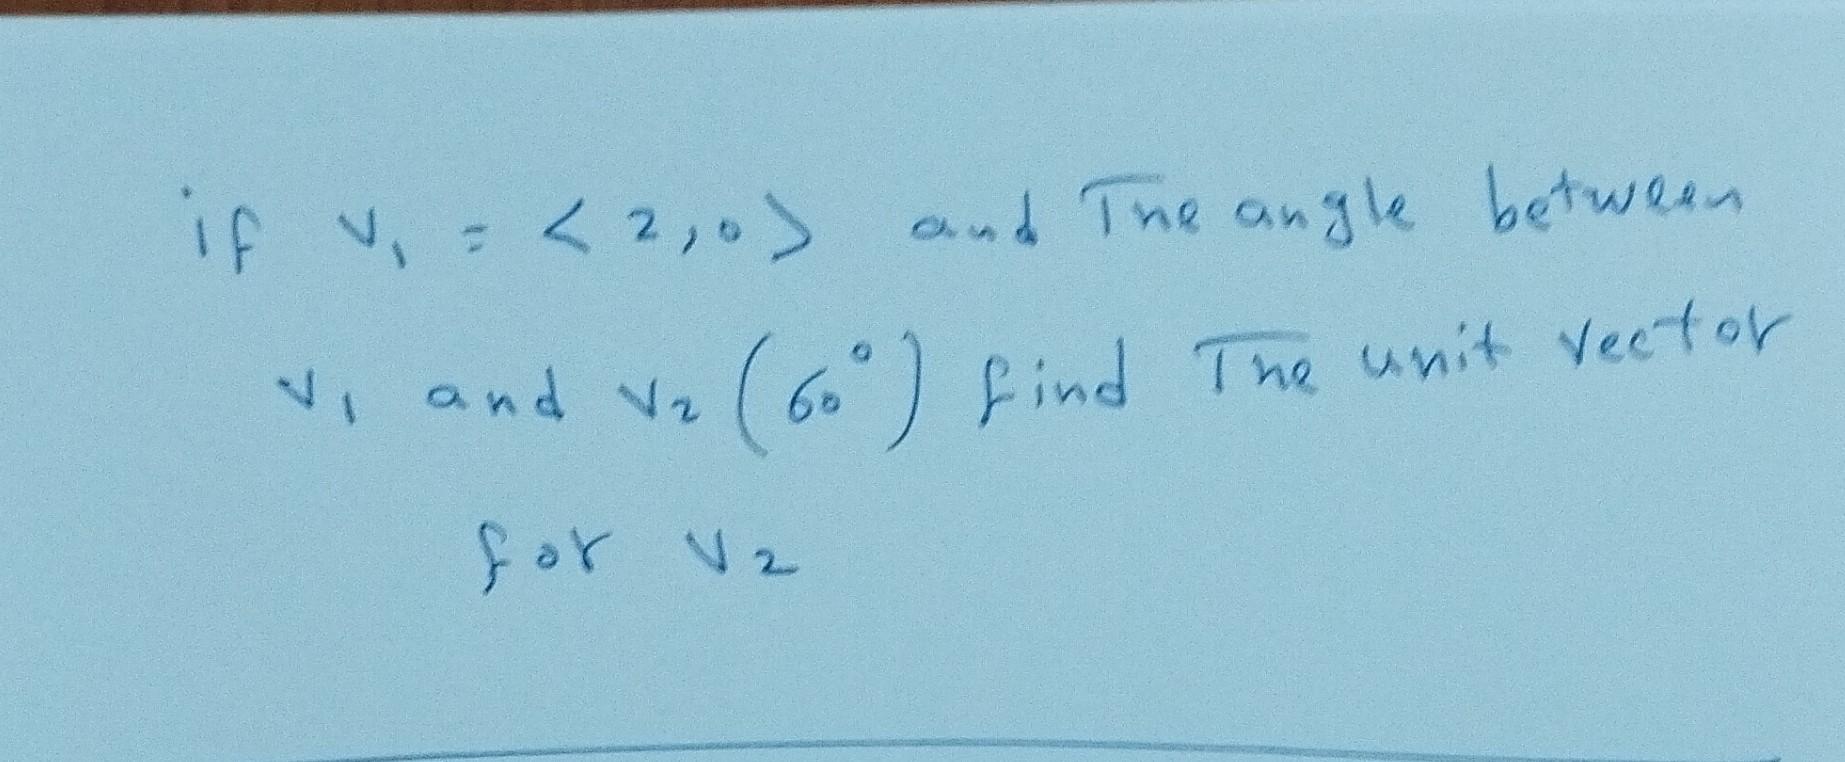 if v₁ = < 2,0> and The angle between
v₁ and v₂ (60°) find The unit vector
for v₂